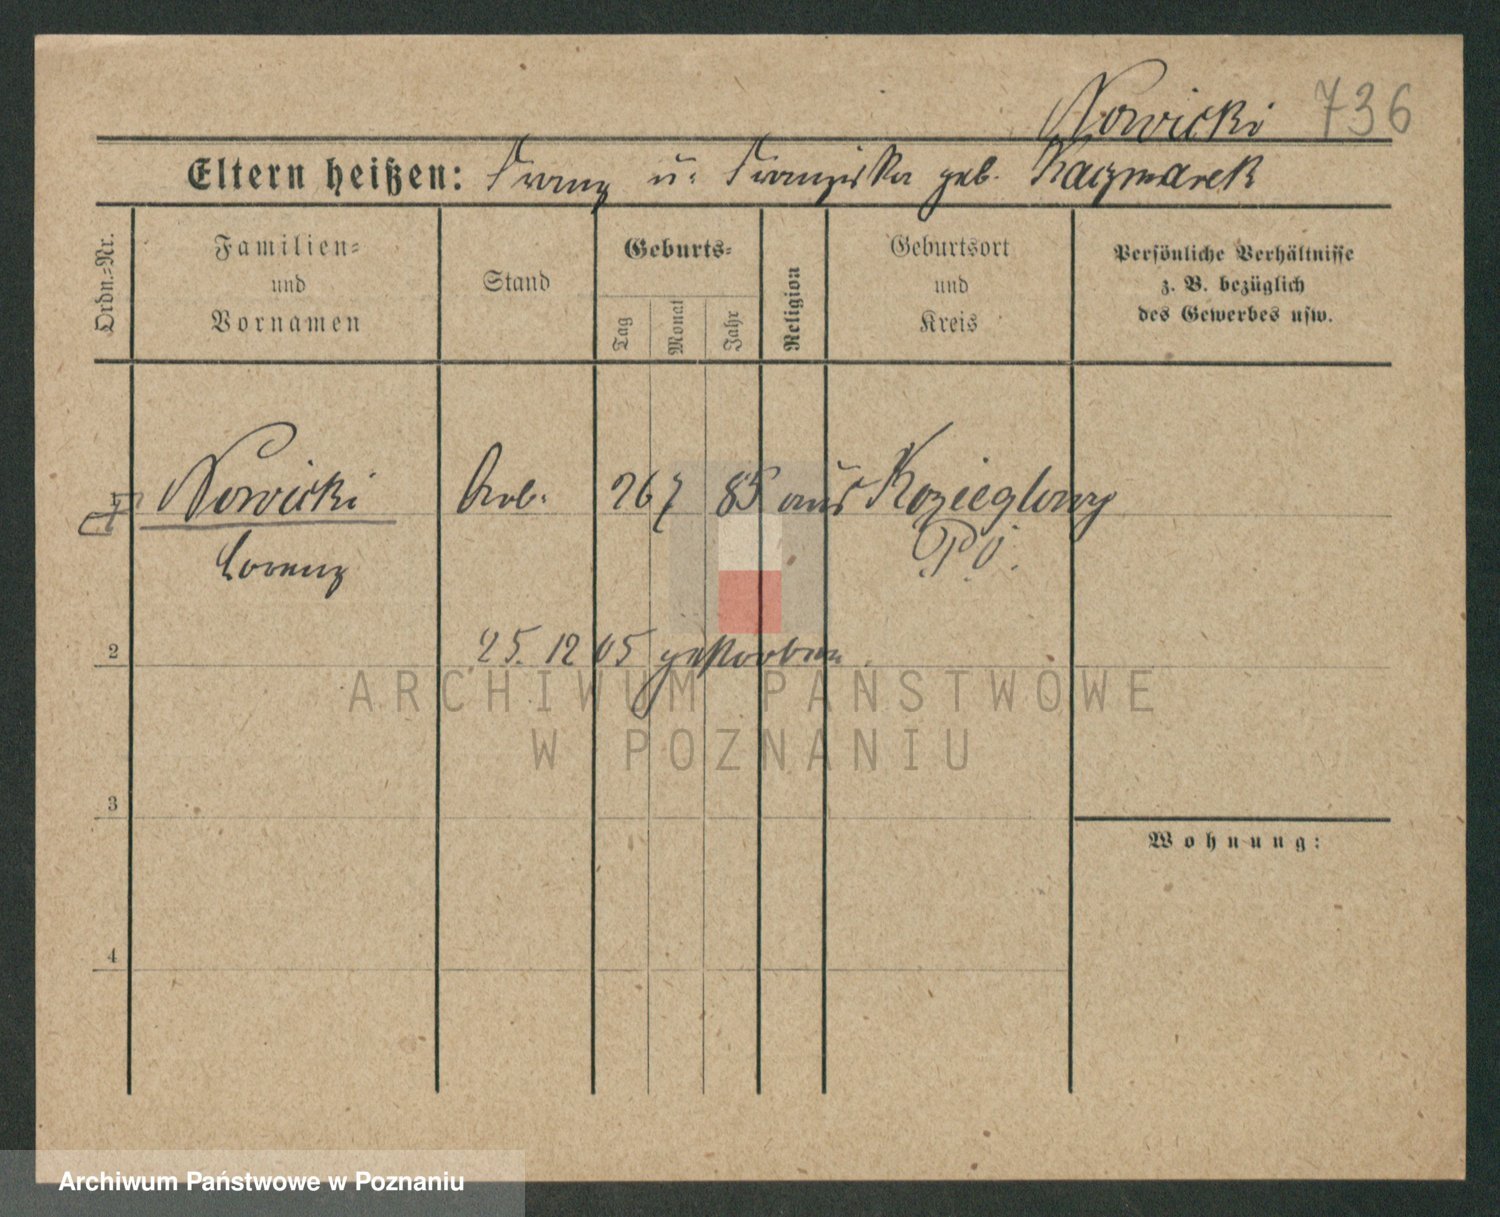 Nowicki 736
Eltern heißen: Franz u. Franziska geb. Kaczmarek
Ordn.=Nr.
Familien=
und
Vornamen
Stand
Geburts=
Tag
Monat
Jahr
Religion
Geburtsort
und
Kreis
Persönliche Verhältnisse
z. B. bezüglich
des Gewerbes usw.
Nowicki Arb. 26 7 85 aus Kozieglowy
Lorenz P. O.
2 25. 12 05 gestorben
ARCHIWUM PAŃSTWOWE
W POZNANIU
3
Wohnung:
4
Archiwum Państwowe w Poznaniu